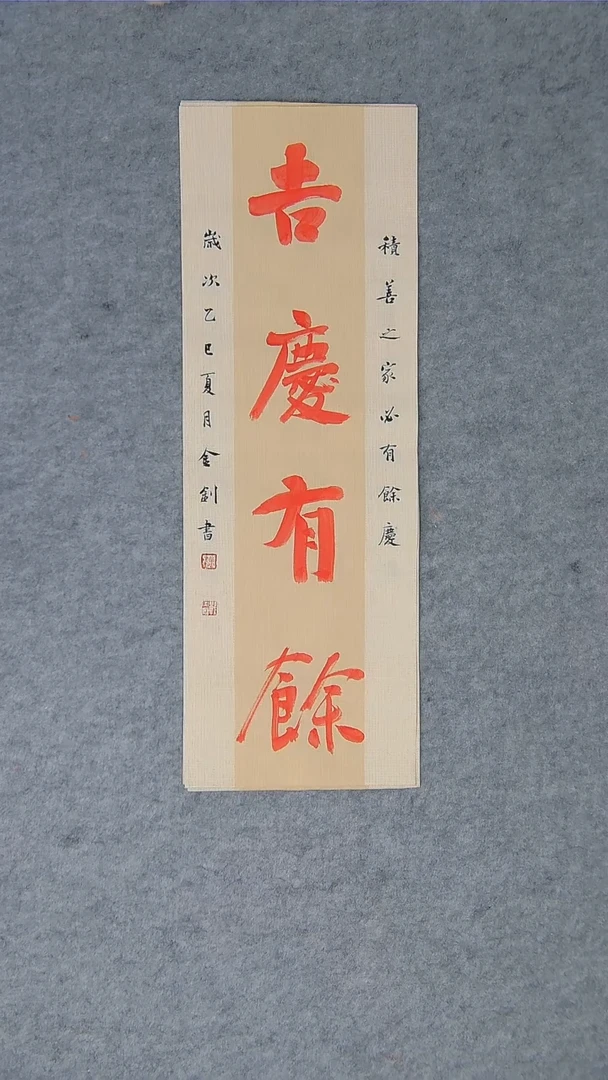 積善之家必有餘慶
吉慶有餘
歲次乙巳夏月金劍書